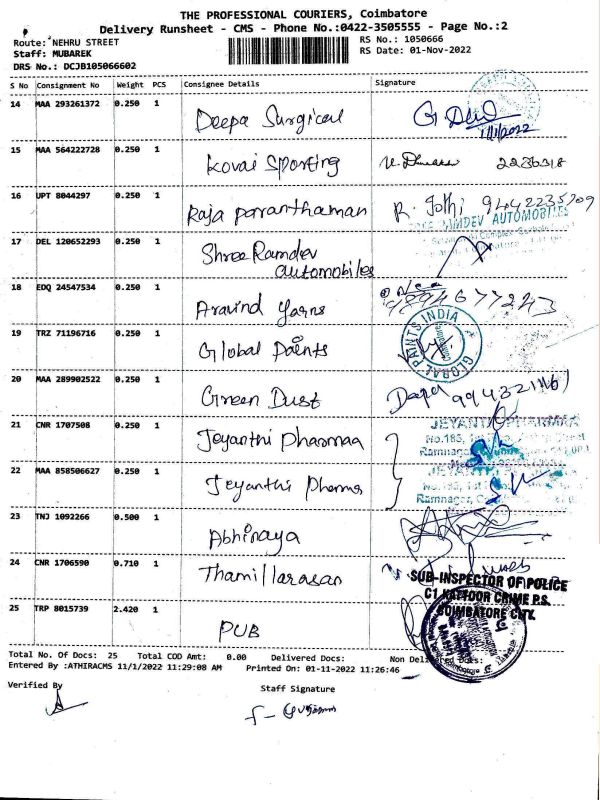 THE PROFESSIONAL COURIERS, Coimbatore
Delivery Runsheet - CMS - Phone No.:0422-3505555 - Page No.:2
Route: NEHRU STREET
RS No.: 1050666
Staff: MUBAREK
RS Date: 01-Nov-2022
DRS No.: DCJB105066602
S No Consignment No Weight PCS Consignee Details Signature
14 MAA 293261372 0.250 1 Deepa Surgical
1/11/2022
15 MAA 564222728 0.250 1 Kovai Sporting 2236318
16 UPT 8044297 0.250 1 Raja paranthaman R. Jothi 9442235709
RAMDEV AUTOMOBILES
17 DEL 120652293 0.250 1 Shree Ramdev
automobiles
18 EDQ 24547534 0.250 1 Aravind Yarns 9894677243
19 TRZ 71196716 0.250 1 Global Paints
GLOBAL PAINTS INDIA
20 MAA 289902522 0.250 1 Green Dust
21 CNR 1707508 0.250 1 Jeyanthi Pharmaa
JEYANTHI PHARMAA
No.185,
Ramnagar,
22 MAA 858506627 0.250 1 Jeyanthi Pharma
Ramnagar,
23 TNJ 1092266 0.500 1 Abhinaya
24 CNR 1706590 0.710 1 Thamillarasan
SUB-INSPECTOR OF POLICE
C1 KATTOOR CRIME P.S.
COIMBATORE CITY.
25 TRP 8015739 2.420 1 PUB
Total No. Of Docs: 25 Total COD Amt: 0.00 Delivered Docs: Non Delivered Docs:
Entered By :ATHIRACMS 11/1/2022 11:29:08 AM Printed On: 01-11-2022 11:26:46
Verified By
Staff Signature